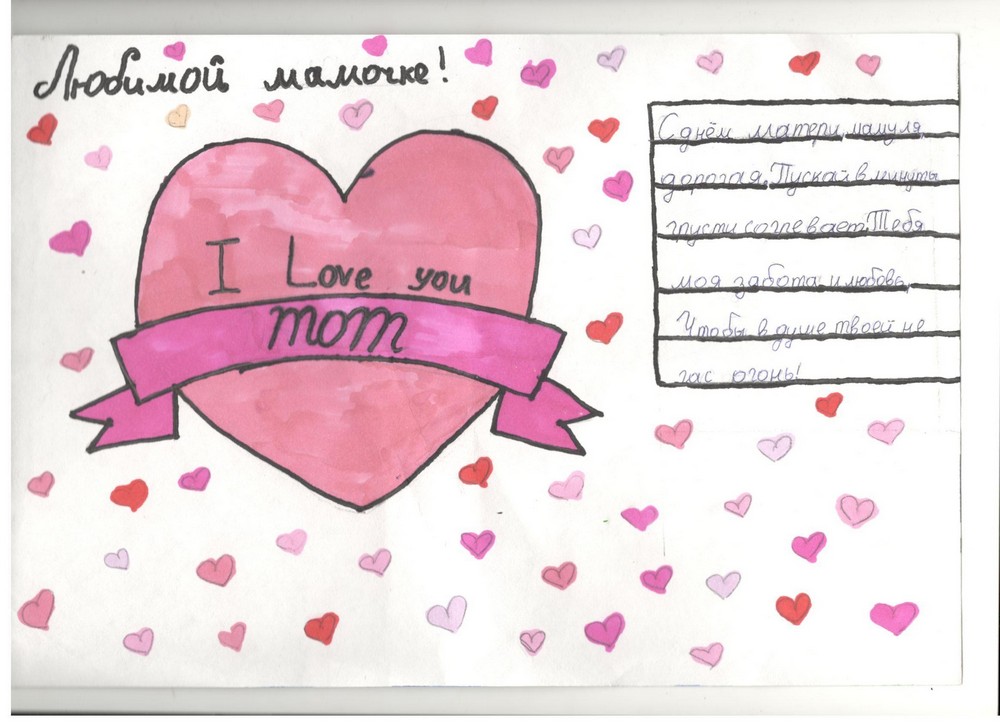 Любимой мамочке!
I Love you
mom
С днём матери, мамуля
дорогая. Пускай в минуты
грусти согревает Тебя
моя забота и любовь,
Чтобы в душе твоей не
гас огонь!